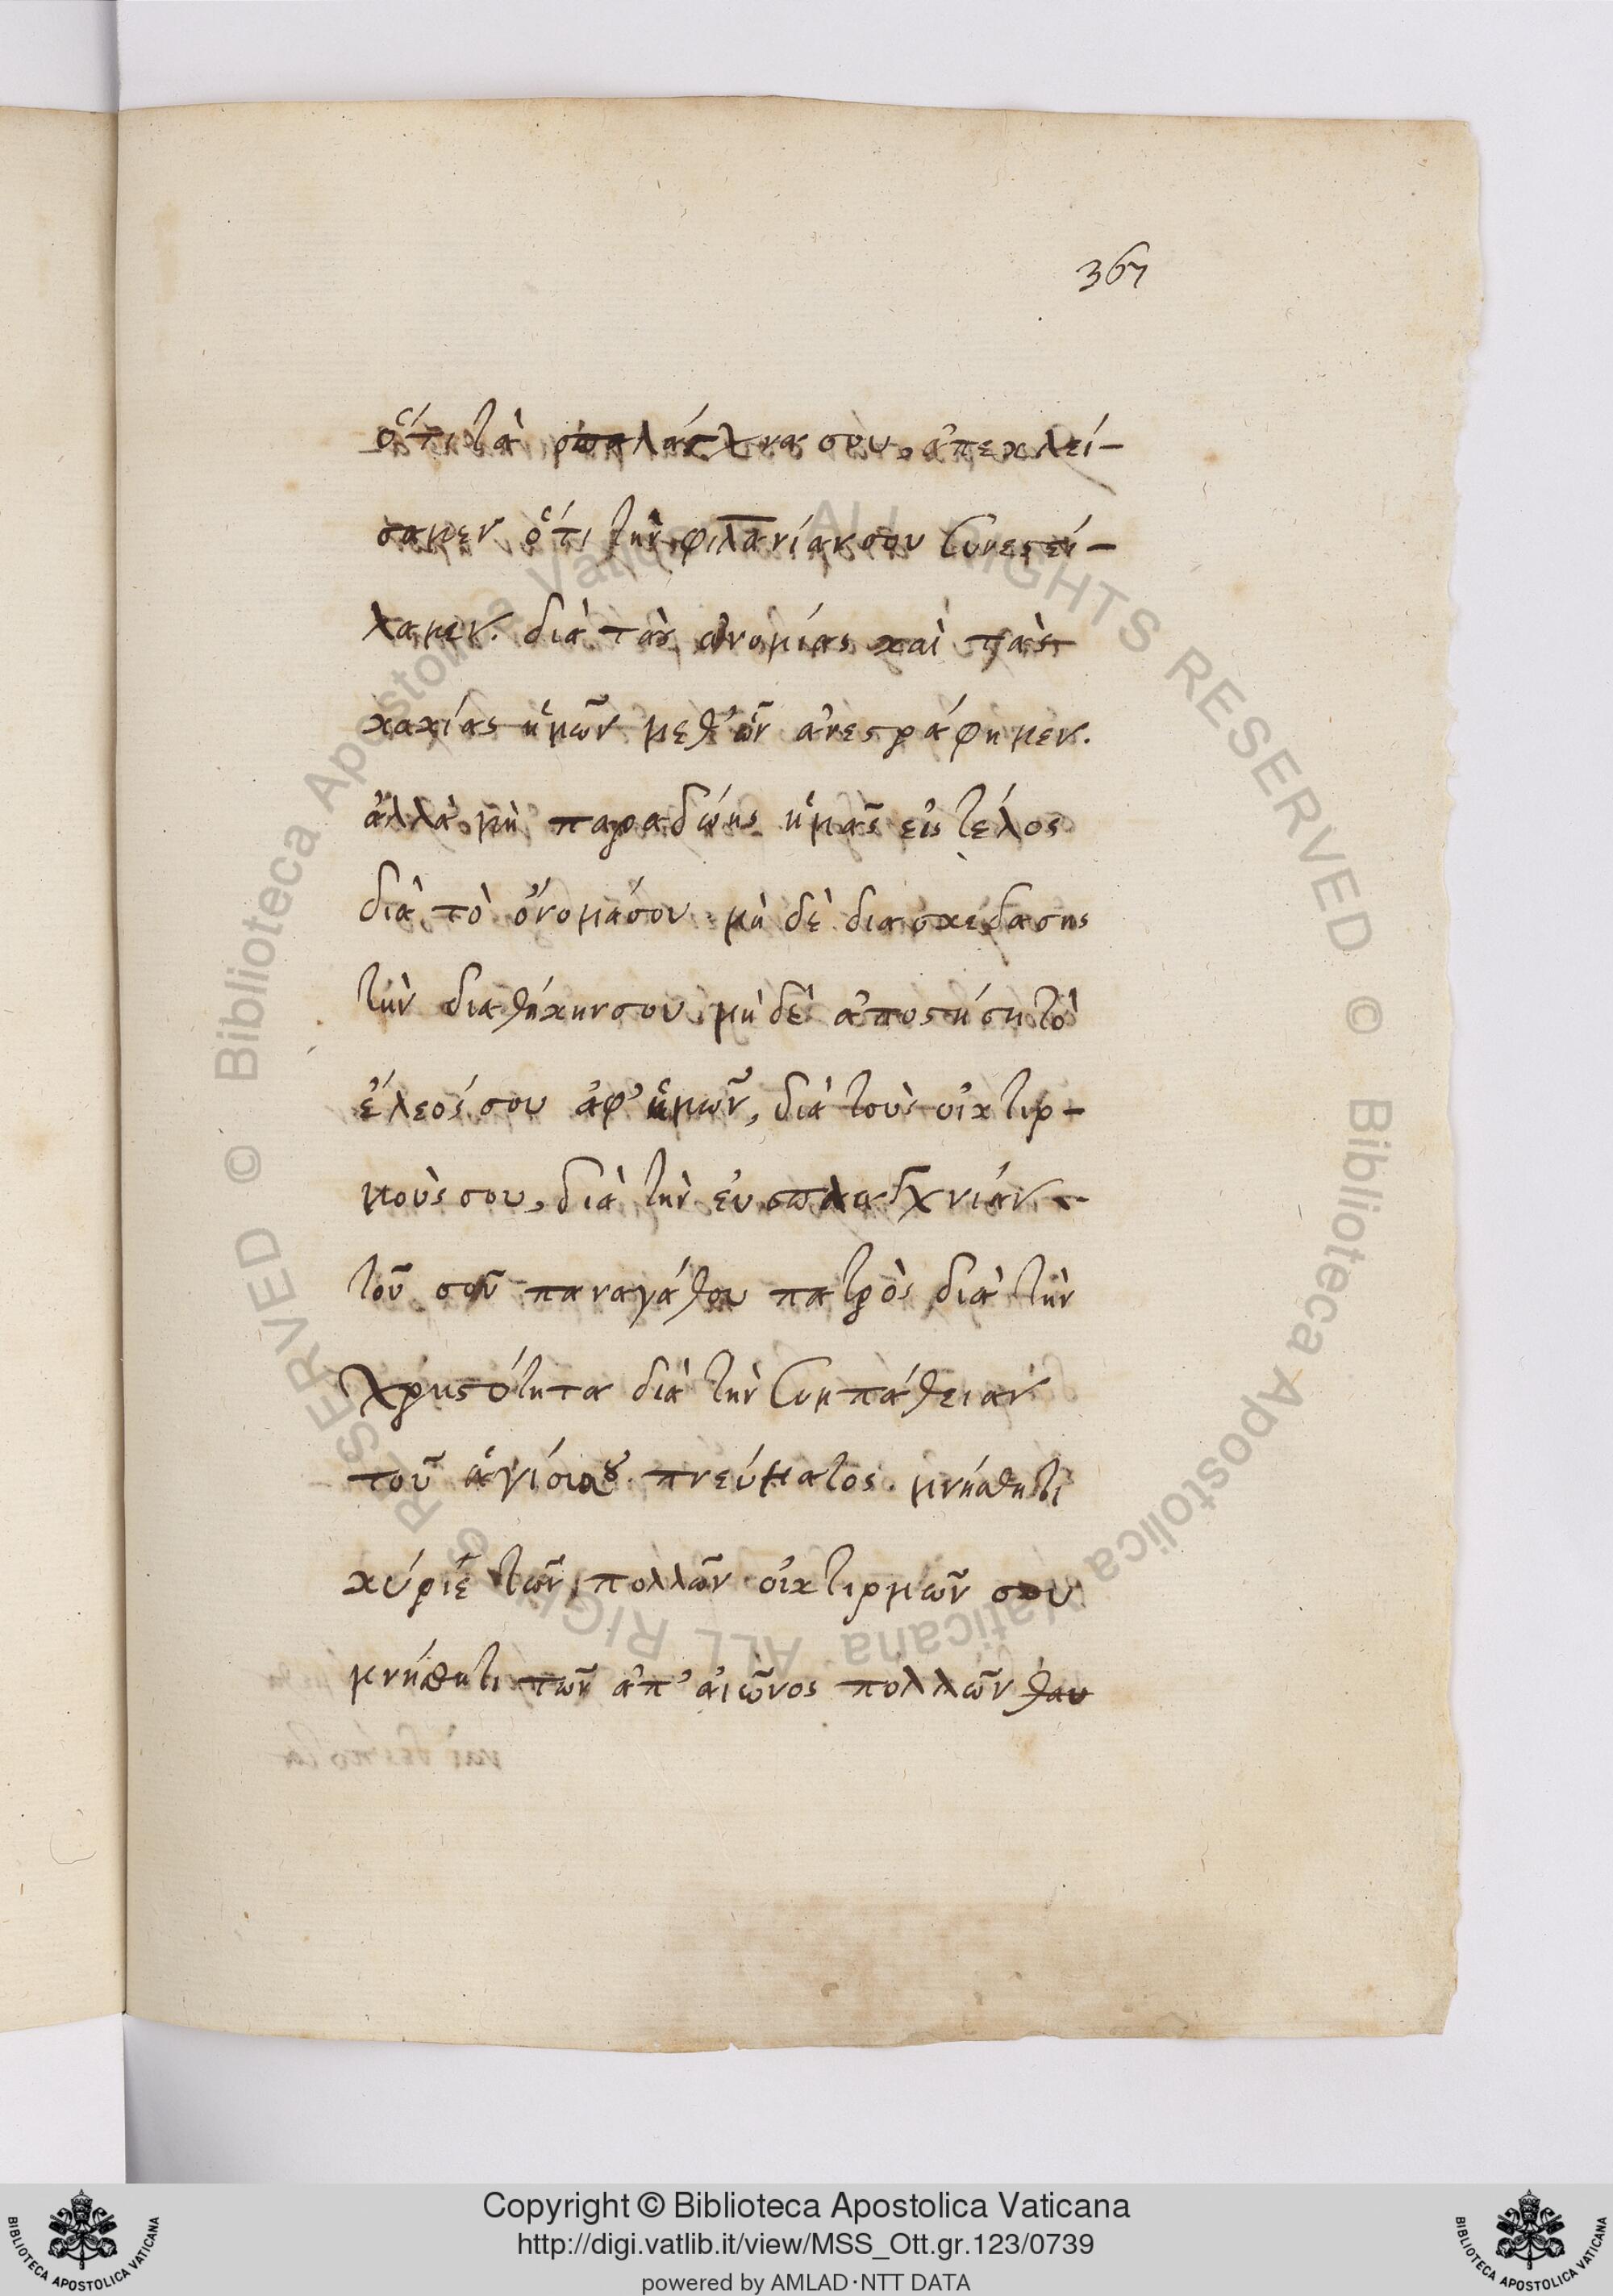 367
ὅτι τὰ σπλάγχνα σου, ἀπεκλεί-
σαμεν ὅτι τὴν φιλανίαν σου συνεστεί-
λαμεν. διὰ τὰς ἀνομίας καὶ τὰς
κακίας ἡμῶν μεθ' ὧν ἀνεστράφημεν.
ἀλλὰ μὴ παραδώης ἡμᾶς εἰς τέλος
διὰ τὸ ὄνομάσου μὴ δὲ διασκεδάσης
τὴν διαθήκην σου μὴ δὲ ἀποστήση τὸ
ἔλεός σου ἀφ' ἡμῶν, διὰ τοὺς οἰκτιρ-
μούς σου, διὰ τὴν εὐσπλαγχνίαν
τοῦ σοῦ παναγάθου πατρὸς διὰ τὴν
χρηστότητα διὰ τὴν συμπάθειαν
τοῦ ἁγίου σου πνεύματος. μνήσθητι
κύριε τῶν πολλῶν οἰκτιρμῶν σου
μνήσθητι τῶν ἀπ' αἰῶνος πολλῶν θαυ
© Biblioteca Apostolica Vaticana ALL RIGHTS RESERVED © Biblioteca Apostolica Vaticana ALL RIGHTS RESERVED
BIBLIOTECA APOSTOLICA VATICANA
Copyright © Biblioteca Apostolica Vaticana
http://digi.vatlib.it/view/MSS_Ott.gr.123/0739
powered by AMLAD·NTT DATA
BIBLIOTECA APOSTOLICA VATICANA